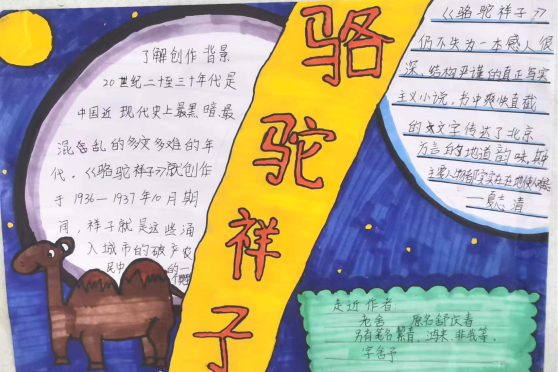 骆
驼
祥
子
了解创作背景
20世纪二十至三十年代是
中国近现代史上最黑暗、最
混乱的多灾多难的年
代,《骆驼祥子》创作
于1936—1937年10月期
间,祥子就是这些涌
入城市的破产农
民中 的一
《骆驼祥子》
仍不失为一本感人很
深、结构严谨的真正写实
主义小说,书中爽快直截
的文字传达了北京
方言的地道韵味,
主要人物都实实在在地
——夏志清
走近作者:
老舍 原名舒庆春
另有笔名絜青、鸿来、非我等,
字舍予